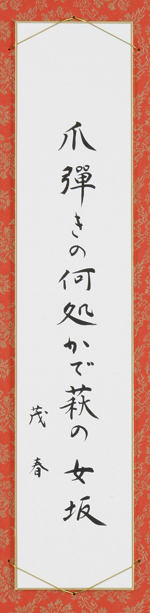 爪彈きの何処かで萩の女坂
茂春